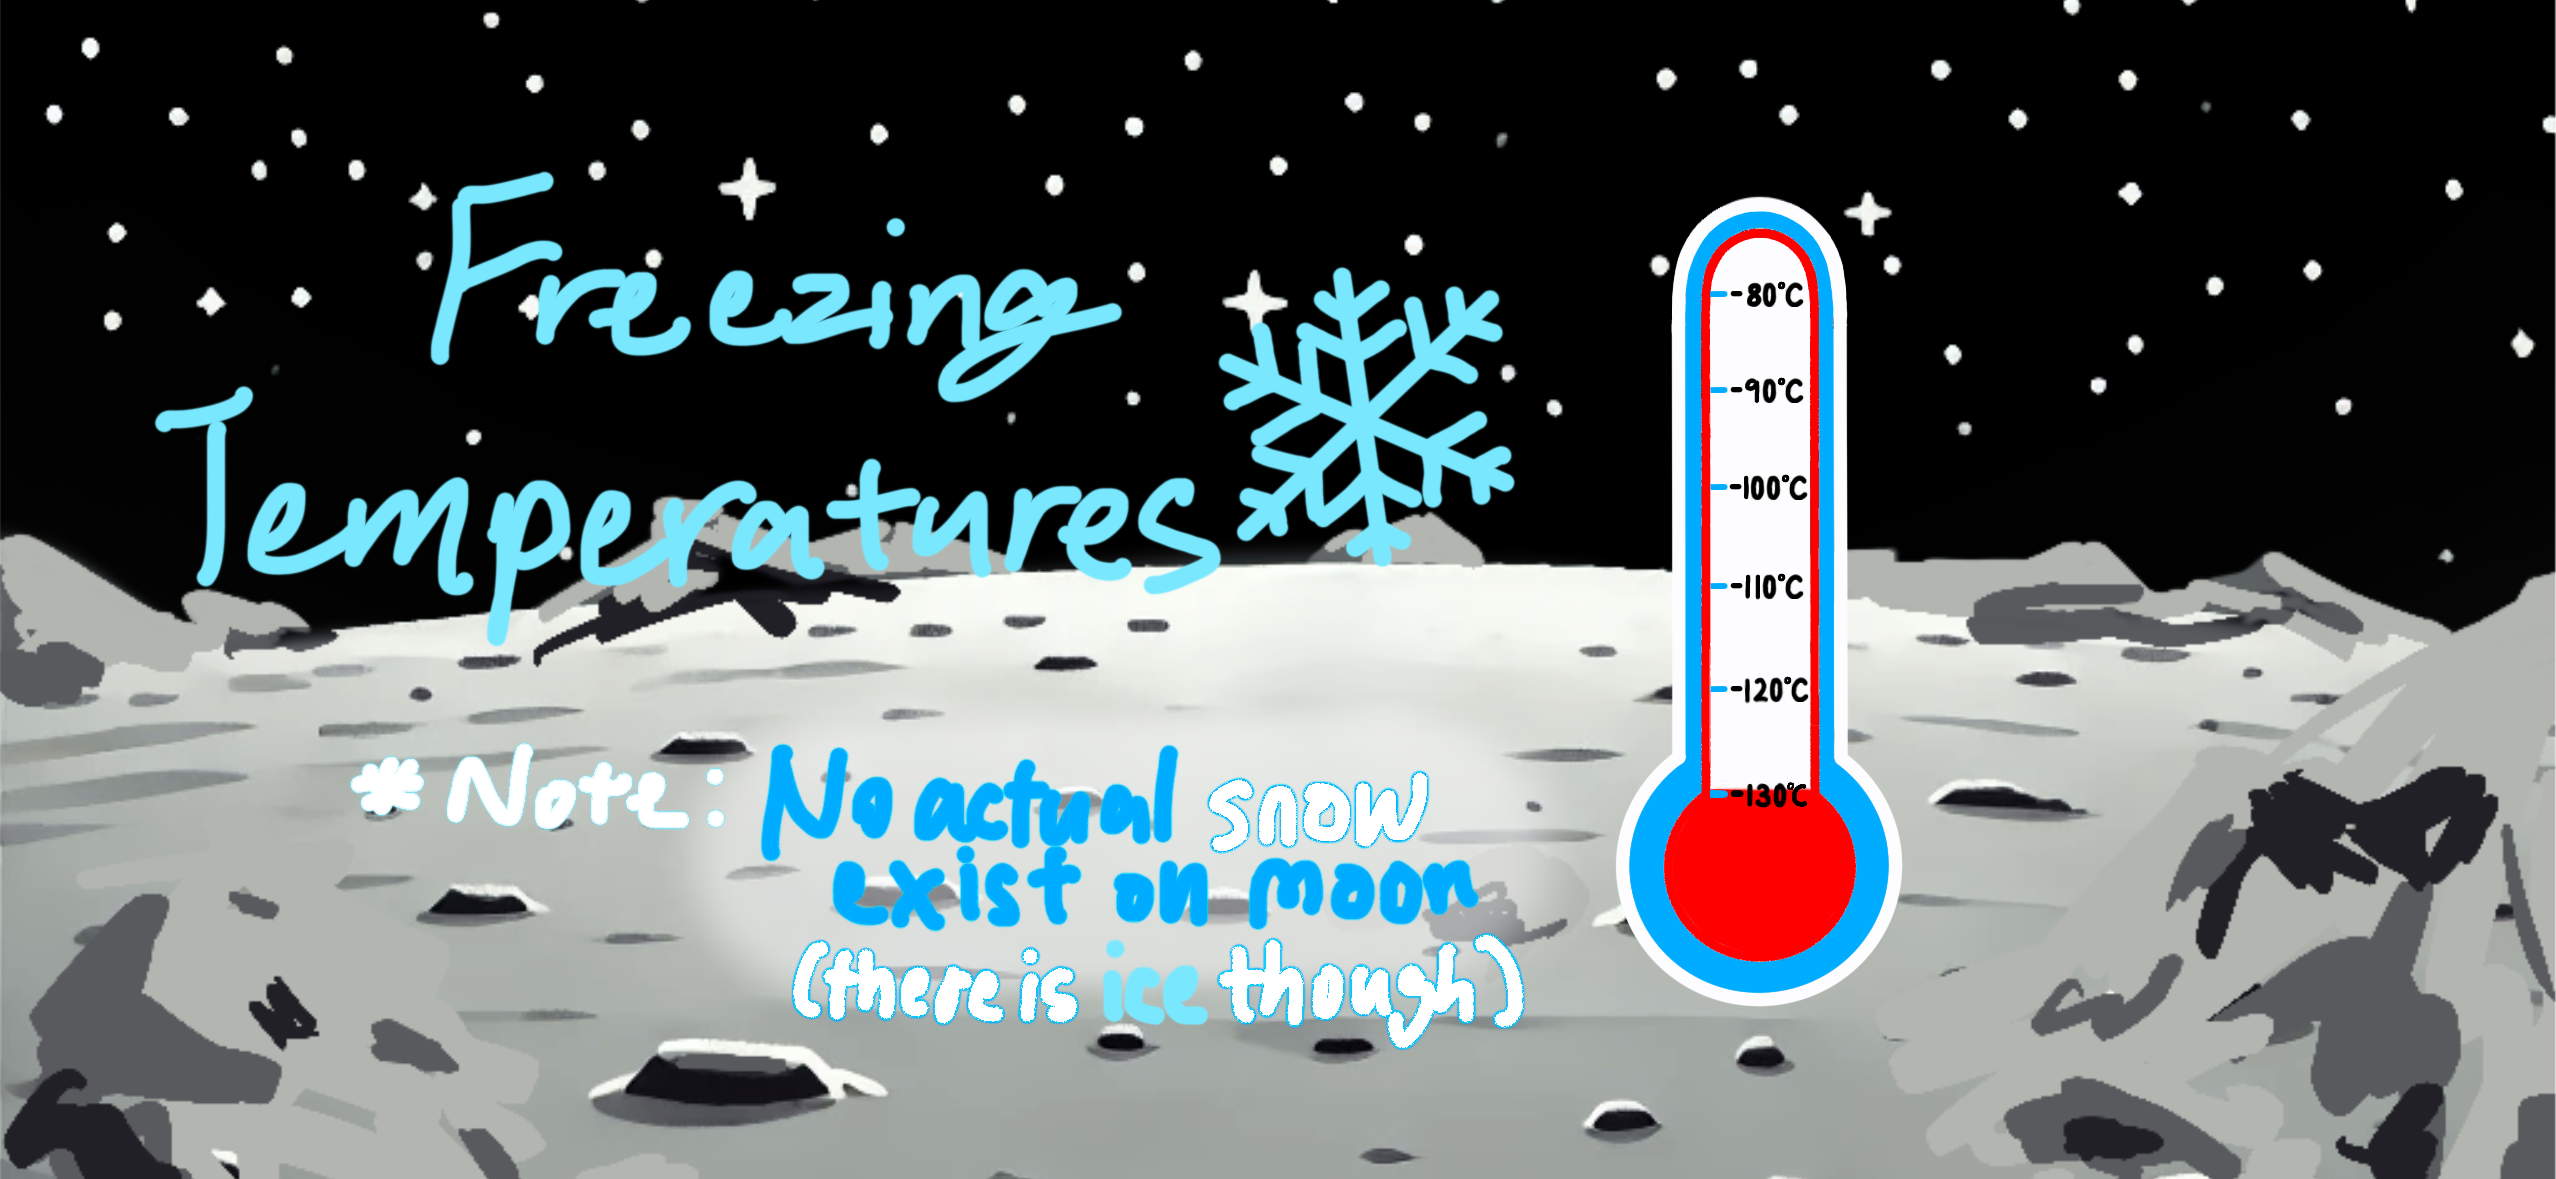 Freezing
Temperatures
*Note: No actual snow
exist on moon
(there is ice though)
-80°C
-90°C
-100°C
-110°C
-120°C
-130°C